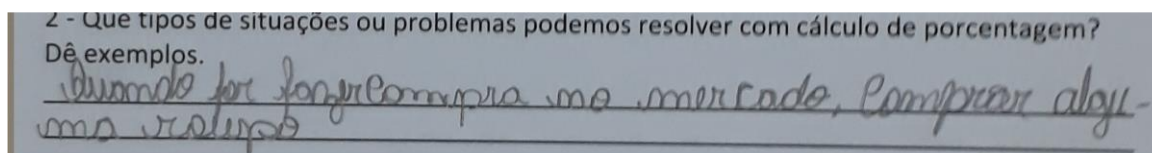 2 - Que tipos de situações ou problemas podemos resolver com cálculo de porcentagem?
Dê exemplos.
Quando for fazer compra no mercado, comprar algu-
ma roupa